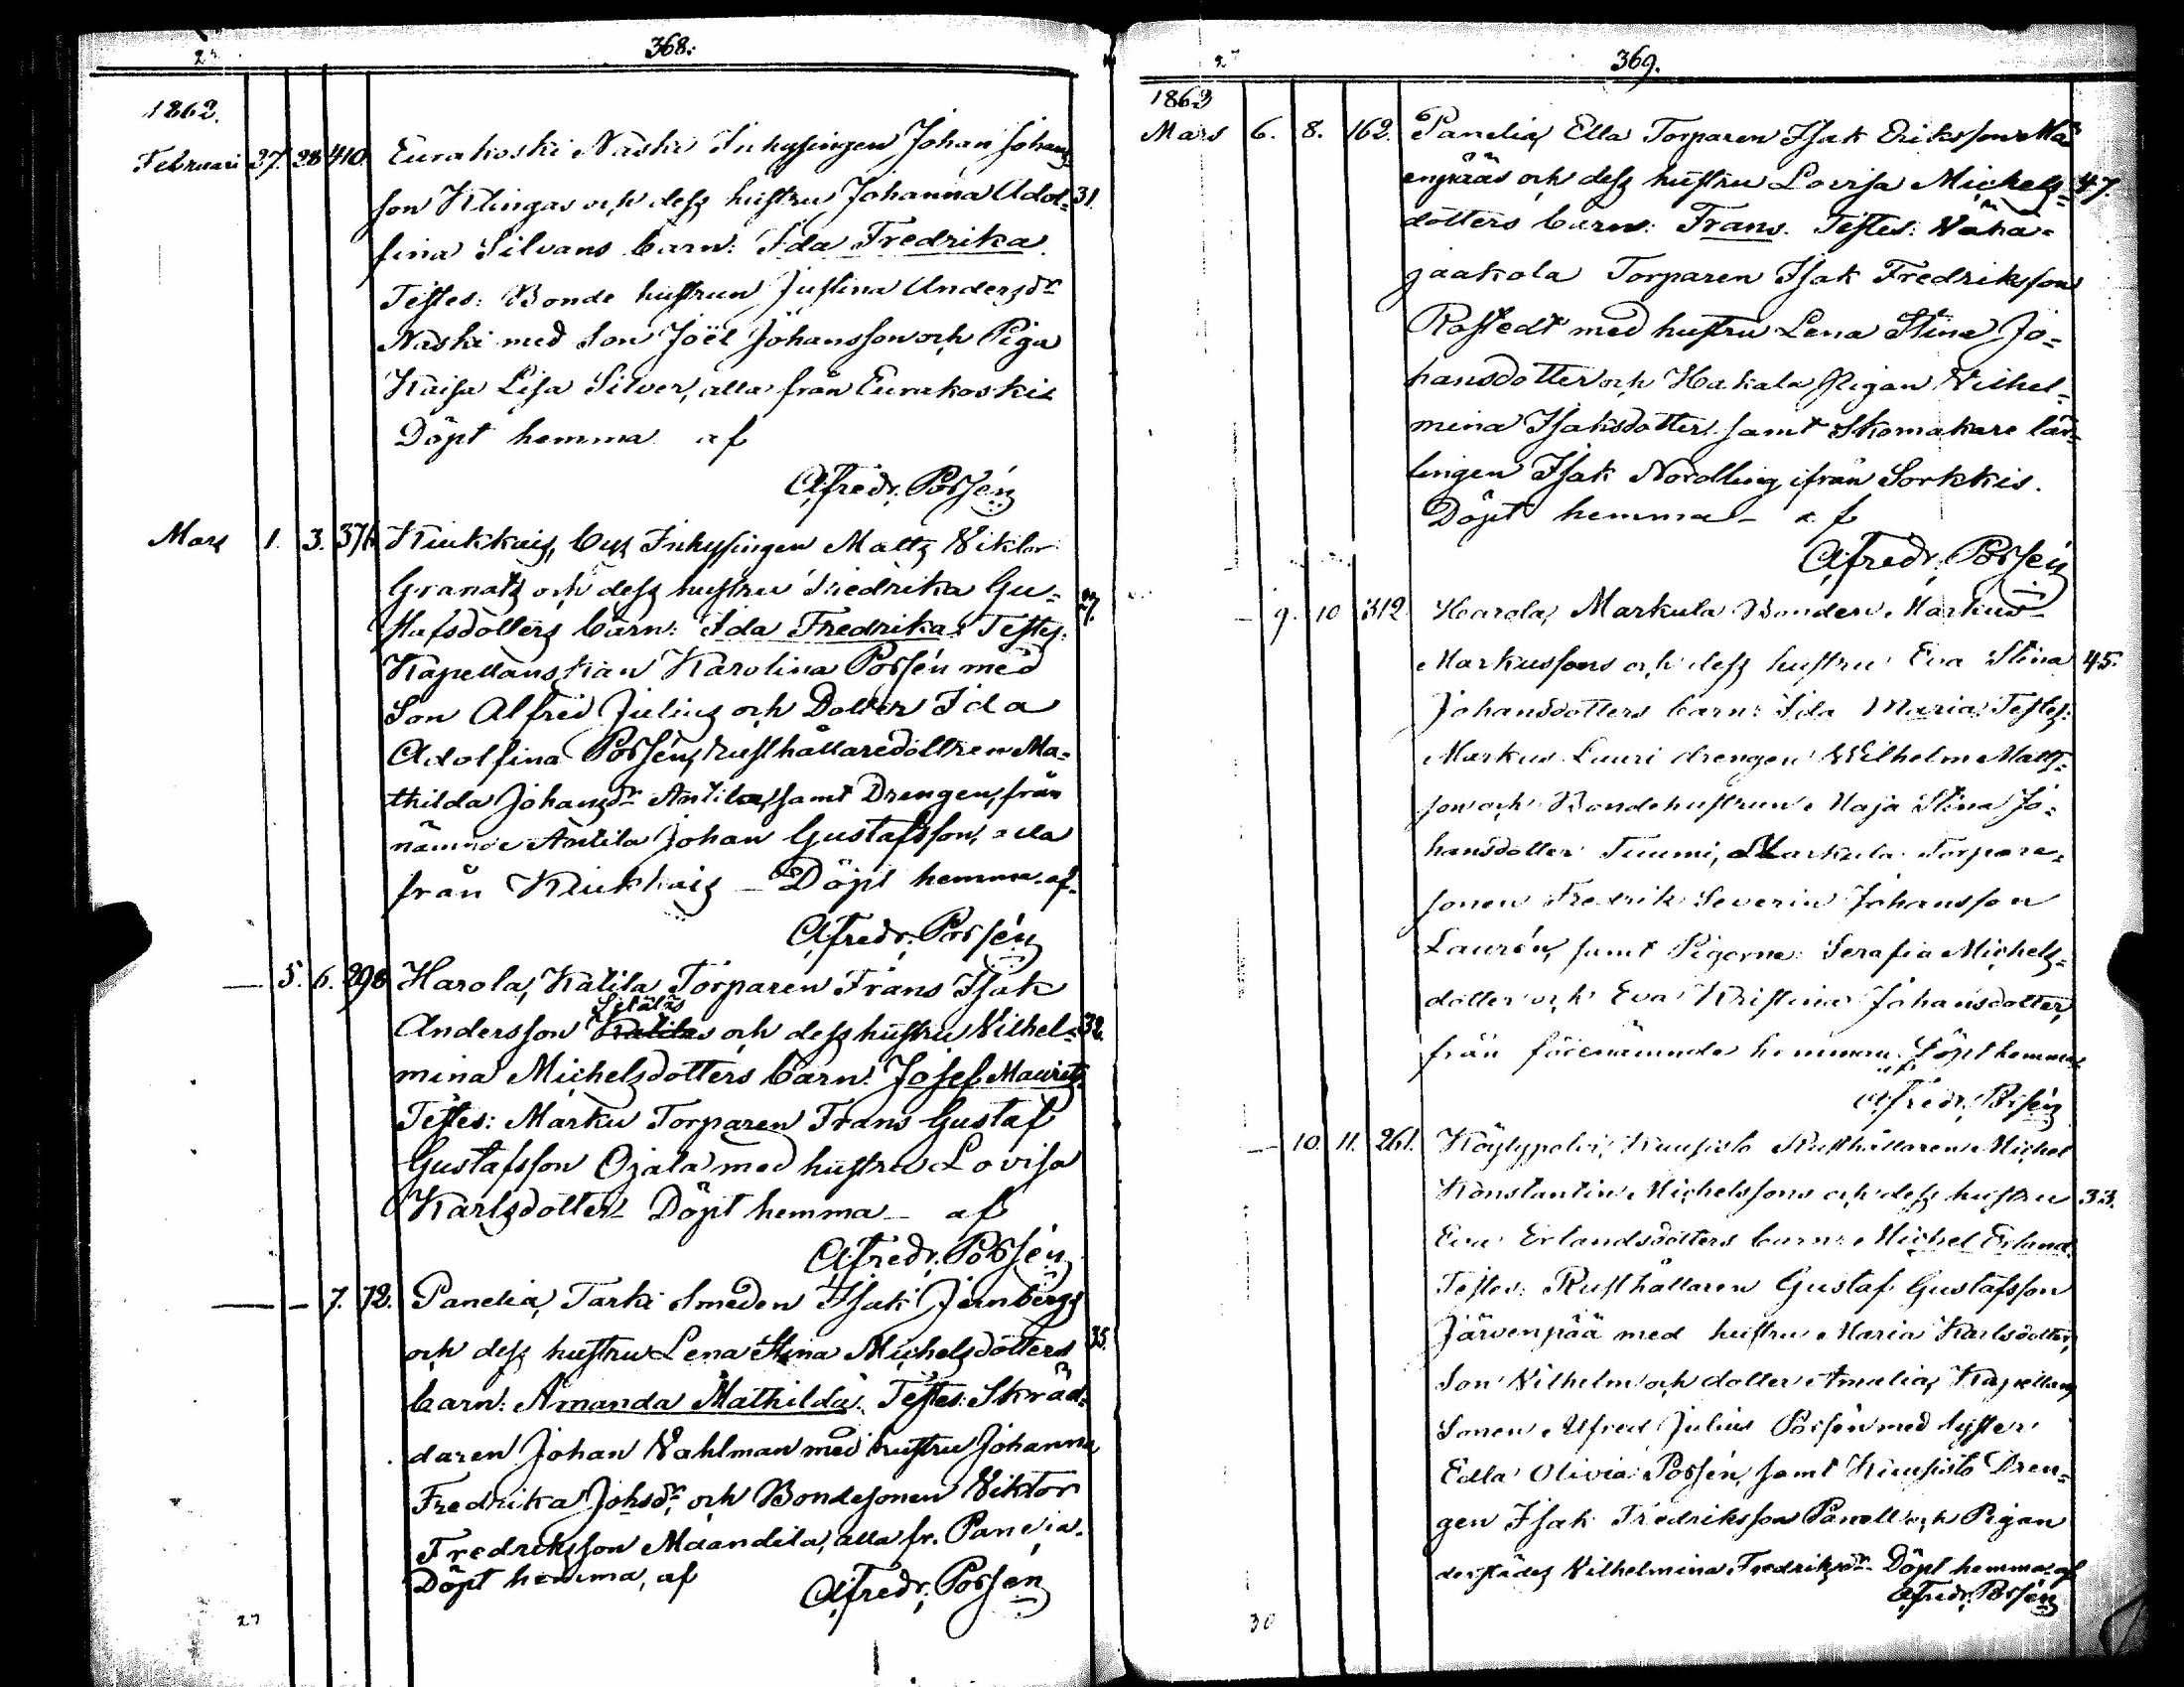 368.
1862.
Februari 27. 28 410. Eurakoski Näski Inhysingen Johan Johans-
son Klingas och dess hustru Johanna Adol- 31.
fina Silvans barn: Ida Fredrika.
Testes: Bonde hustrun Justina Andersdr
Näski med Son Joël Johansson och Piga
Kaisa Lisa Silver, alla från Eurakoski
Döpt hemma af
Afredr. Possén
Mars 1. 3. 371. Kiukkais, bys Inhysingen Matts Viktor
Granats och dess hustru Fredrika Gu- 27.
stafsdotters barn: Ida Fredrika. Testes:
Kapellanskan Karolina Possén med
Son Alfred Julius och Dotter Ida
Adolfina Possén, rusthållaredottren Ma-
thilda Johansdr Antila, samt Drengen, från
nämnde Antila Johan Gustafsson, alla
från Kiukkais – Döpt hemma af
Afredr. Possén
— 5. 6. 298 Harola, Katila Torparen Frans Isak
Setäläs
Andersson Katilas och dess hustru Vilhel- 32.
mina Michelsdotters barn: Josef Maurits
Testes: Marku Torparen Frans Gustaf
Gustafsson Ojala med hustru Lovisa
Karlsdotter – Döpt hemma – af
Afredr. Possén
— — 7. 72. Panelia, Tarki Smeden Isak Jernbergs
och dess hustru Lena Stina Michelsdotters 35.
barn: Amanda Mathilda. Testes: Skräd-
daren Johan Vahlman med hustru Johanna
Fredrika Johsdr, och Bondesonen Viktor
Fredriksson Maandila, alla fr. Panelia.
Döpt hemma, af Afredr. Possén
369.
1863
Mars 6. 8. 162. Panelia, Ella Torparen Isak Eriksson Mä-
enpääs och dess hustru Lovisa Michels- 47.
dotters barn: Frans. Testes: Vähä-
jaakola Torparen Isak Fredriksson
Rostedt med hustru Lena Stina Jo-
hansdotter och Hakala Pigan Vilhel-
mina Isaksdotter samt Skomakare lär-
lingen Isak Nordling ifrån Sorkkis.
Döpt hemma – af
Afredr. Possén
— 9. 10 312. Harola, Markula Bonden Markus
Markussons och dess hustru Eva Stina 45.
Johansdotters barn: Ida Maria. Testes:
Markus Lauri drengen Wilhelm Matts-
son och Bondehustrun Maja Stina Jo-
hansdotter Tuumi, Markula Torpare-
sonen Fredrik Severin Johansson
Laurén, samt Pigorne: Serafia Michels-
dotter och Eva Kristina Johansdotter,
från förenämnde hemman. Döpt hemma
af
Afredr. Possén
— 10. 11. 261. Köylypolvi, Kuusisto Rusthållaren Michel
Konstantin Michelssons och dess hustru 33.
Eva Erlandsdotters barn: Michel Erland.
Testes: Rusthållaren Gustaf Gustafsson
Järvenpää med hustru Maria Karlsdotter,
Son Vilhelm och dotter Amalia, Kapellans
Sonen Alfred Julius Possén med syster
Edla Olivia Possén, samt Kuusisto Dren-
gen Isak Fredriksson Panell och Pigan
derstädes Vilhelmina Fredriksdr. Döpt hemma af
Afredr. Possén
30